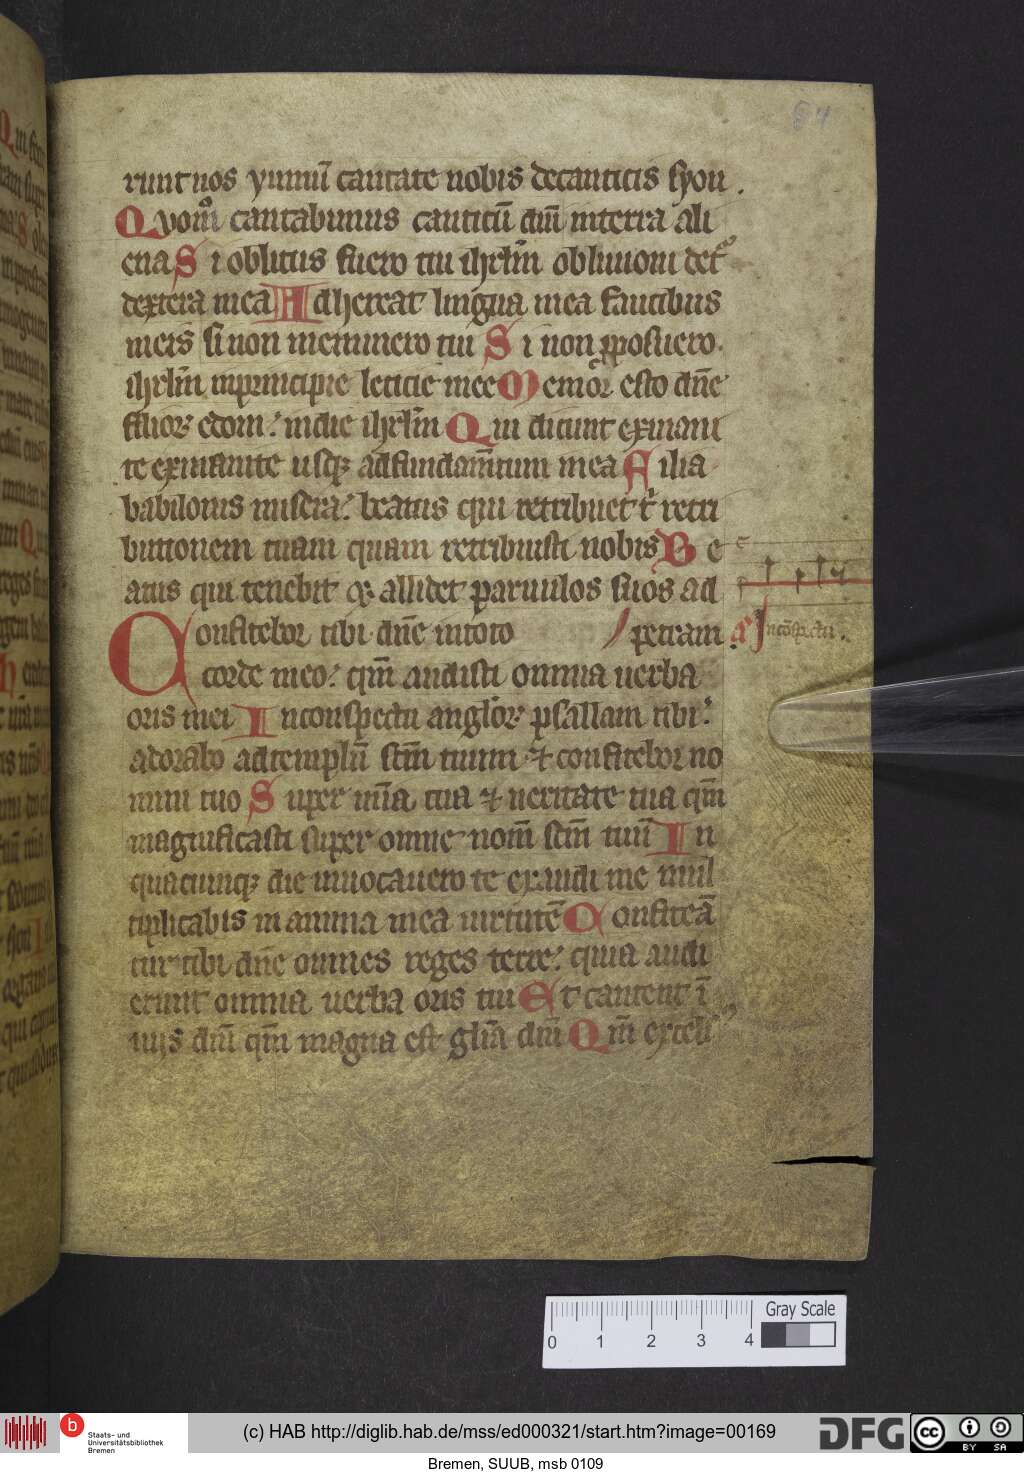 84
runt nos ymnū cantate nobis de canticis syon.
Quomͦ cantabimus canticū dn̄i in terra ali
ena Si oblitus fuero tui ihrl̄m obliuioni det᷑
dextera mea Adhereat lingua mea faucibus
meis si non meminero tui Si non ꝓposuero
ihrl̄m in principie leticie mee Memor esto dn̄e
filior edom: in die ihrl̄m Qui dicunt exinani
te exinanite usqꝫ ad fundam̄tum in ea Filia
babilonis misera: beatus qui retribuet t̄ retri
butionem tuam quam retribuisti nobis Be
atus qui tenebit ⁊ allidet paruulos suos ad
Confitebor tibi dn̄e in toto petram. a In cōspectu.
corde meo: qm̄ audisti omnia uerba
oris mei In conspectu anglor psallam tibi:
adorabo ad templū scm̄ tuum ⁊ confitebor no
mini tuo Super mīa tua ⁊ ueritate tua qm̄
magnificasti super omne nom̄ scm̄ tuū In
quacunqꝫ die inuocauero te exaudi me mul
tiplicabis in anima mea uirtutē Confiteā
tur tibi dn̄e omnes reges terre: quia audi
erunt omnia uerba oris tui Et cantent ī
uijs dn̄i qm̄ magna est glīa dn̄i Qm̄ excels᷑
Gray Scale
0 1 2 3 4
b Staats- und
Universitätsbibliothek
Bremen
(c) HAB http://diglib.hab.de/mss/ed000321/start.htm?image=00169
DFG
cc BY SA
Bremen, SUUB, msb 0109